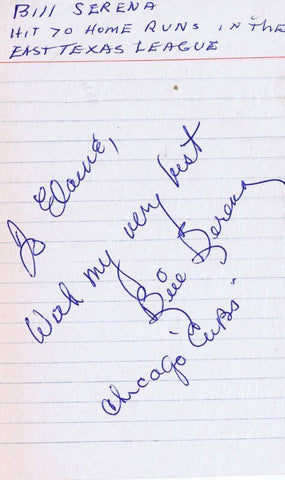 Bill SERENA
HIT 70 HOME RUNS IN THE
EAST TEXAS LEAGUE
To Elaine,
With my very best
Bill Serena
Chicago "Cubs"